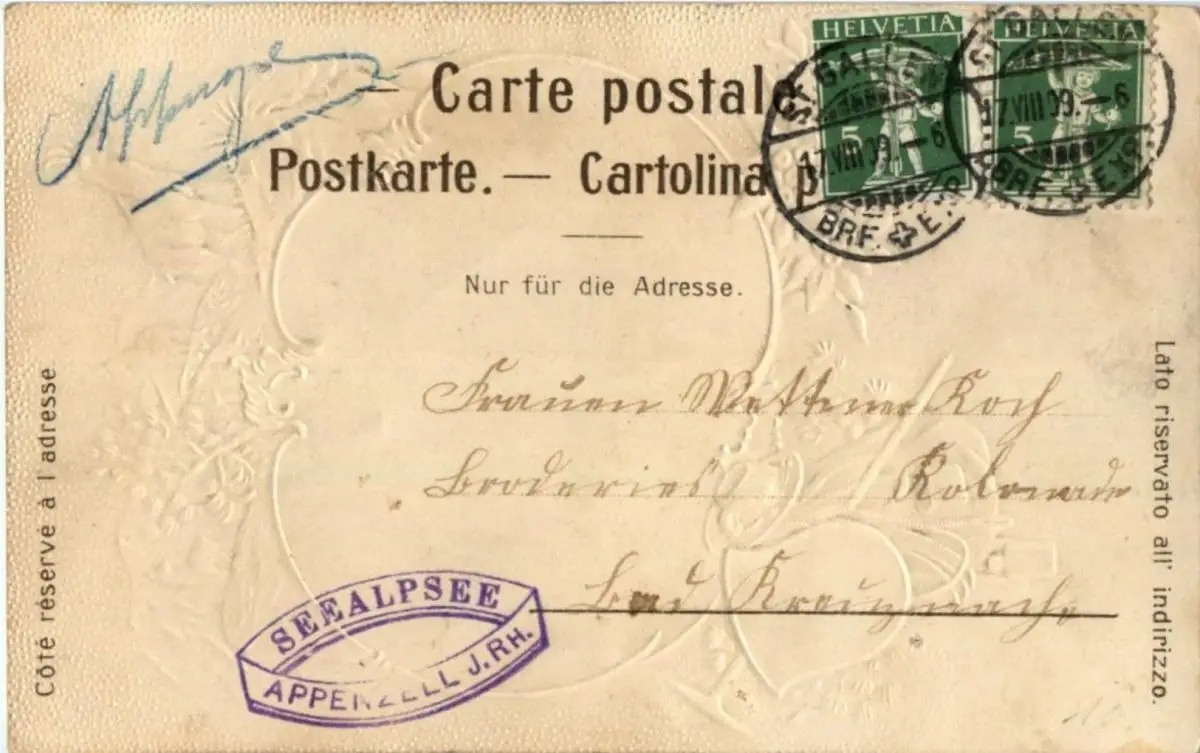 Carte postale
Postkarte. — Cartolina p
Nur für die Adresse.
HELVETIA
5
HELVETIA
5
ST. GALLEN
17.VIII.09.—6
BRF. E
ST. GALLEN
17.VIII.09.—6
BRF. EXP.
Frauen Koch
Broderies Kolonade
Bad Kreuznach
SEEALPSEE
APPENZELL J. RH.
Côté réservé à l'adresse
Lato riservato all' indirizzo.